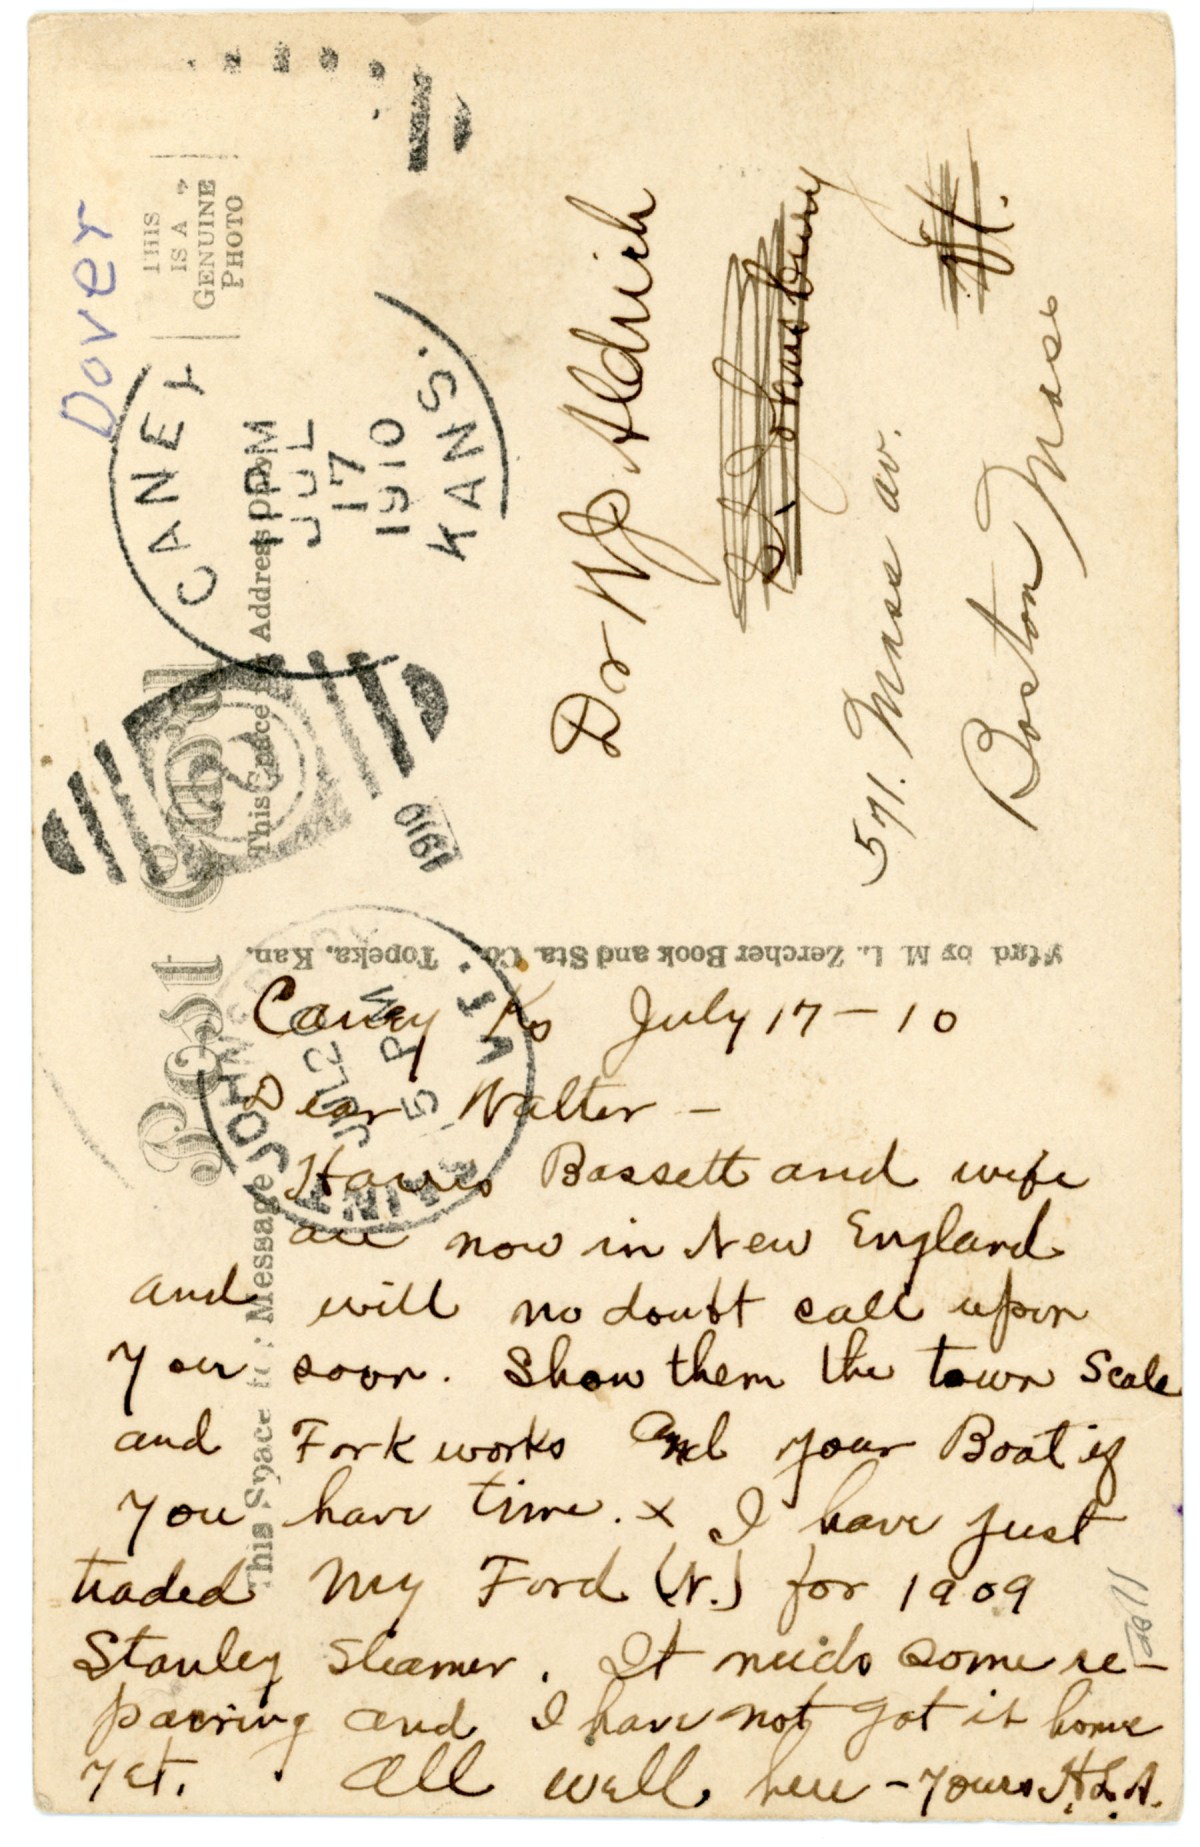 Dover
THIS
IS A ?
GENUINE
PHOTO
CANEY
1 PM
JUL
17
1910
KANS.
Post Card
This Space for Address Only
1910
Dr W J Aldrich
St. Johnsbury
Vt.
571. Mass av.
Boston Mass
by M. L. Zercher Book and Sta. Co. Topeka, Kan.
SAINT JOHNSBURY
JUL 20
5 PM
VT.
This Space for Message
Caney Ks July 17-10
Dear Walter -
Harris Bassett and wife
are now in New England
and will no doubt call upon
you soon. Show them the town Scale
and Fork works and your Boat if
you have time. x I have just
traded my Ford (N.) for 1909
Stanley Steamer. It needs some re-
pairing and I have not got it home
yet. All well here - Yours H.L.A.